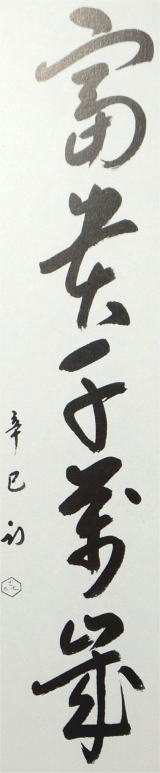 富貴千萬歲
辛巳初